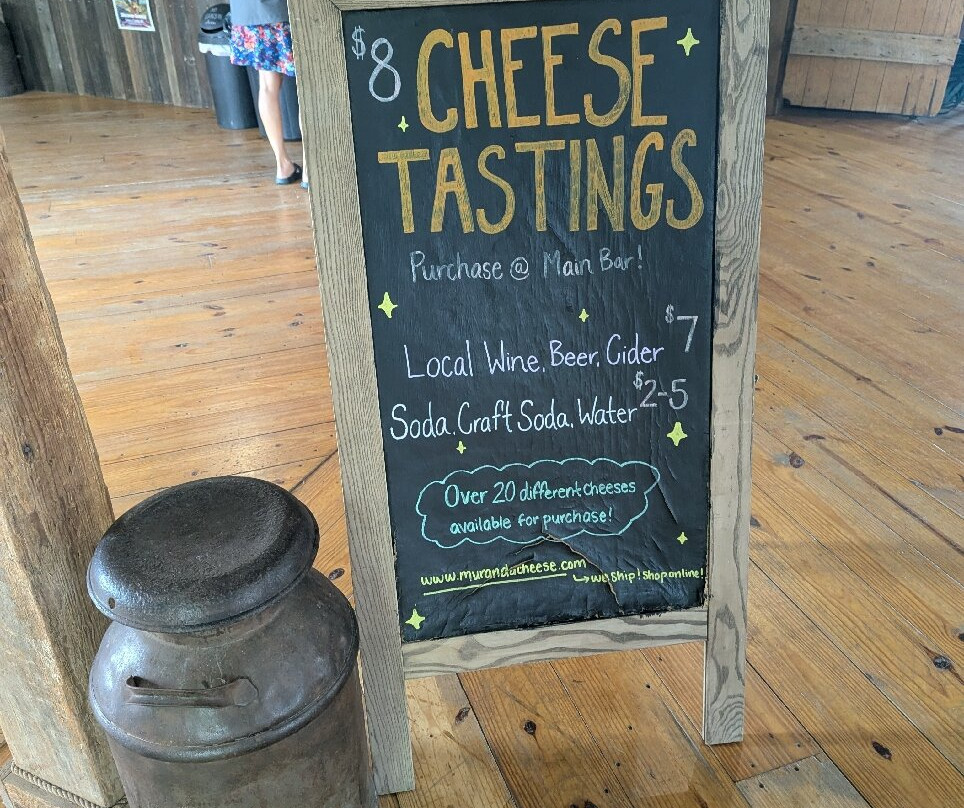 $8 CHEESE
TASTINGS
Purchase @ Main Bar!
Local Wine, Beer, Cider $7
Soda, Craft Soda, Water $2-5
Over 20 different cheeses
available for purchase!
www.murandacheese.com
→ we ship! shop online!